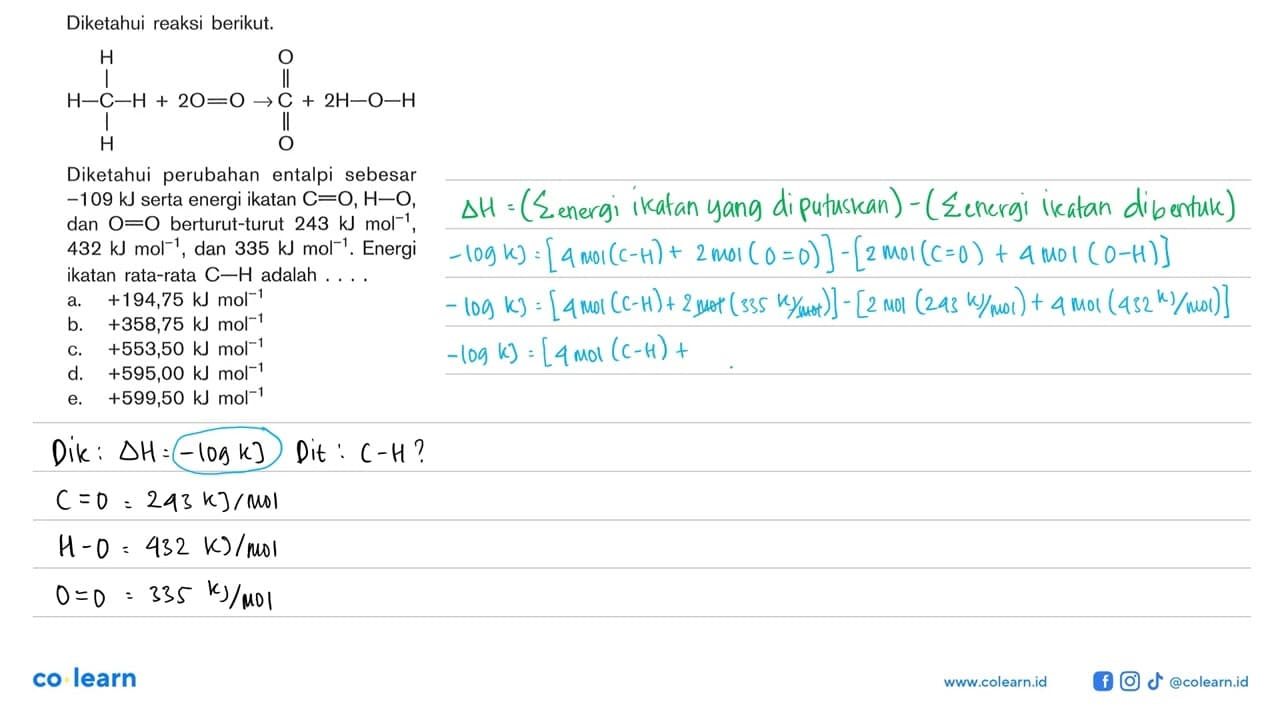 Diketahui reaksi berikut.
H O
| ||
H—C—H + 2O=O → C + 2H—O—H
| ||
H O
Diketahui perubahan entalpi sebesar
−109 kJ serta energi ikatan C=O, H—O,
dan O=O berturut-turut 243 kJ mol⁻¹,
432 kJ mol⁻¹, dan 335 kJ mol⁻¹. Energi
ikatan rata-rata C—H adalah . . . .
a. +194,75 kJ mol⁻¹
b. +358,75 kJ mol⁻¹
c. +553,50 kJ mol⁻¹
d. +595,00 kJ mol⁻¹
e. +599,50 kJ mol⁻¹
ΔH = (Σenergi ikatan yang diputuskan) - (Σenergi ikatan dibentuk)
-109 kJ = [4 mol (C-H) + 2 mol (O=O)] - [2 mol (C=O) + 4 mol (O-H)]
-109 kJ = [4 mol (C-H) + 2 mol (335 kJ/mol)] - [2 mol (243 kJ/mol) + 4 mol (432 kJ/mol)]
-109 kJ = [4 mol (C-H) +
Dik : ΔH = -109 kJ Dit : C-H ?
C=O = 243 kJ/mol
H-O = 432 kJ/mol
O=O = 335 kJ/mol
co learn
www.colearn.id
@colearn.id